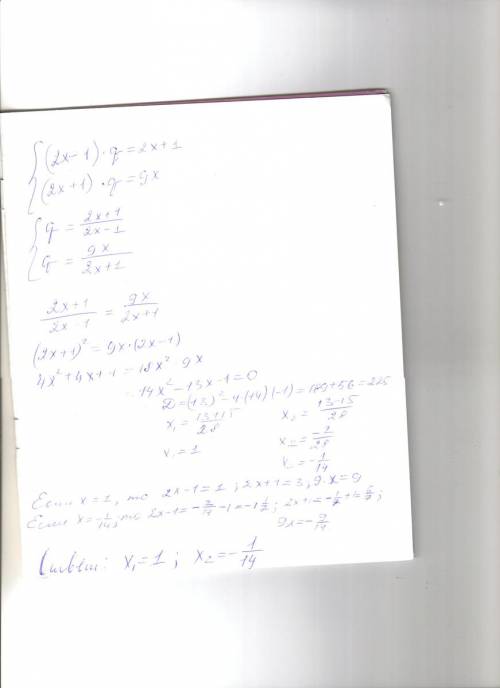 (2x-1)·q=2x+1
(2x+1)·q=9x
q = 2x+1/2x-1
q = 9x/2x+1
2x+1/2x-1 = 9x/2x+1
(2x+1)²=9x·(2x-1)
4x²+4x+1=18x² 9x
14x²-13x-1=0
D=(13)²-4·(14)(-1)=169+56=225
x₁=13+15/28 x₂=13-15/28
x₂=-2/28
x₁=1 x₂=-1/14
Если x=1, то 2x-1=1; 2x+1=3, 9·x=9
Если x=-1/14, то 2x-1=-2/14-1=-1 1/7; 2x+1=-1/7+1=6/7;
9x=-9/14
Ответ: x₁=1; x₂=-1/14